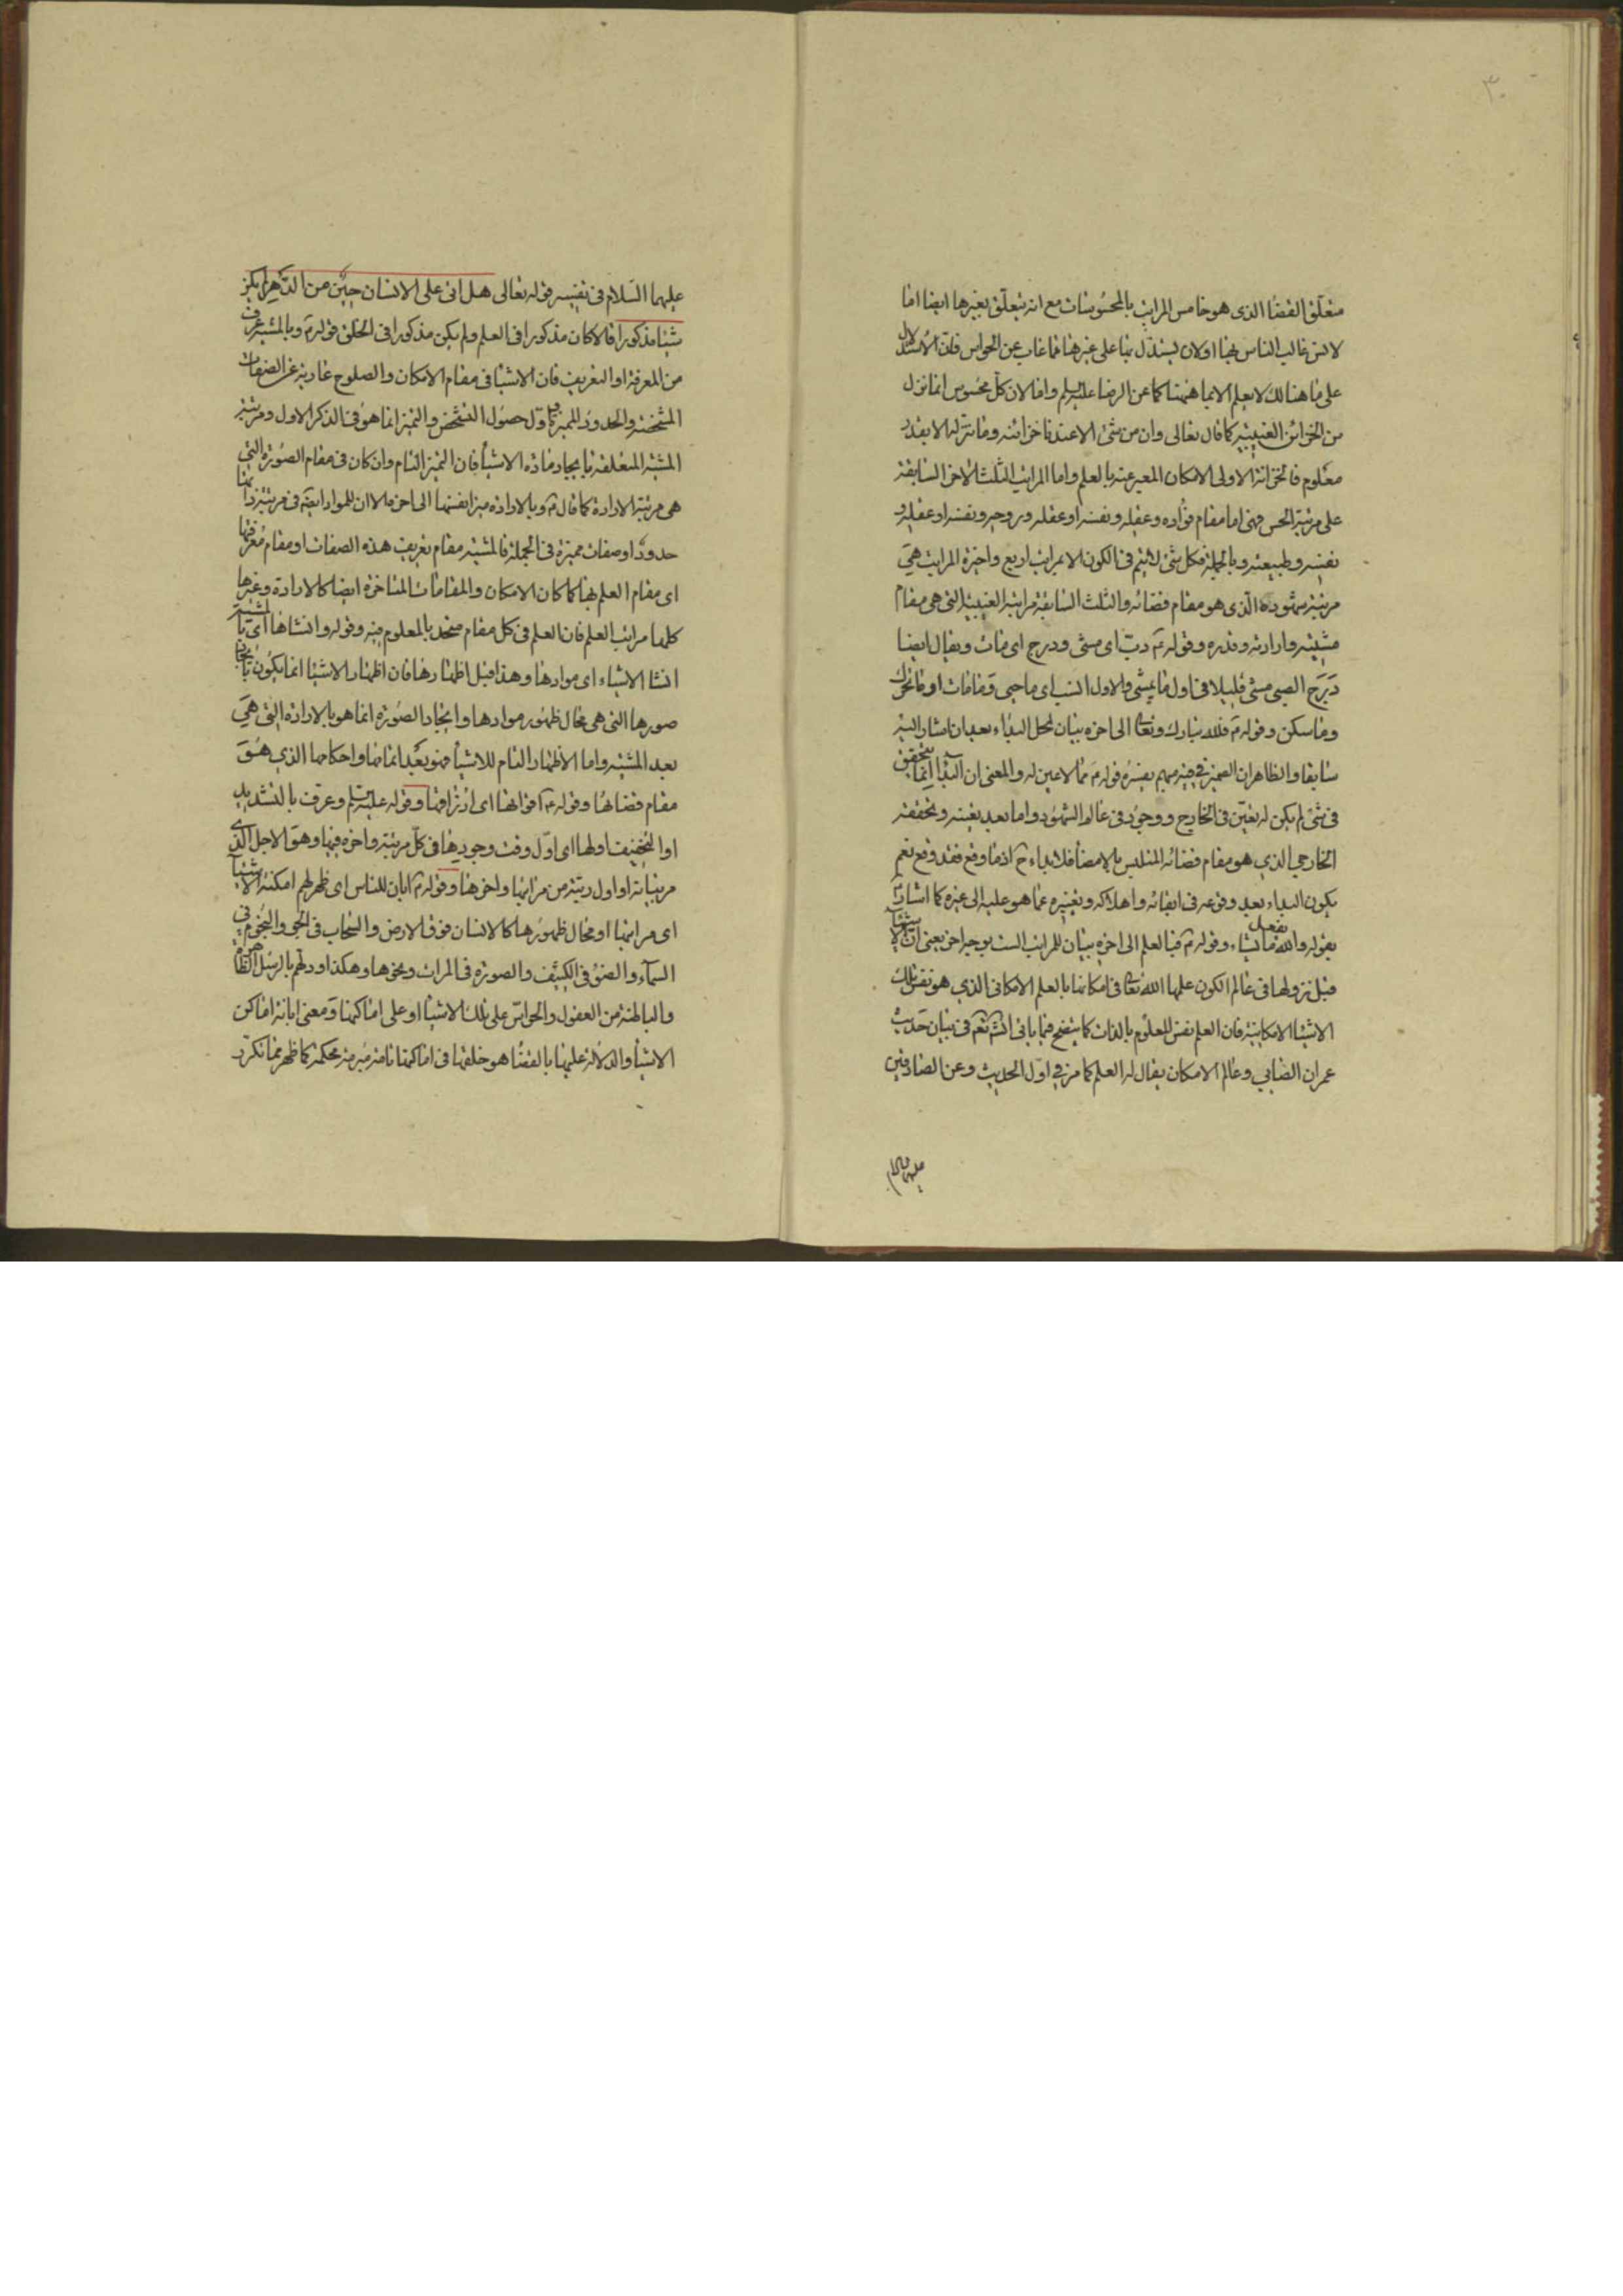 ٣٠
متعلق القضا الذى هو خامس المراتب بالمحسوسات مع انه يتعلق بغيرها ايضا اما
لانس غالب الناس بها اولان يستدل بها على غيرها مما غاب عن الحواس فان الاستدلال
على ما هنالك لا يعلم الا بما هيهنا كما عن الرضا عليه السلم واما لان كل محسوس انما نزل
من الخزائن الغيبية كما قال تعالى وان من شئ الا عندنا خزائنه وما ننزله الا بقدر
معلوم فالخزانة الاولى الامكان المعبر عنه بالعلم واما المراتب الثلث الاخر السابقة
على مرتبة الحس فهى اما مقام فؤاده وعقله ونفسه او عقله وروحه ونفسه او عقله و
نفسه وطبيعته وبالجملة فكل شئ لا يتم فى الكون الا بمراتب اربع واخيرة المراتب هى
مرتبة شهوده الذى هو مقام قضائه والثلث السابقة مراتبه الغيبية التى هى مقام
مشيته وارادته وقدره وقوله ع دب اى مشى ودرج اى مات ويقال ايضا
درج الصبى مشى قليلا فى اول ما يمشى والاول انسب اى ما حيى وما مات او ما تحرك
وما سكن وقوله ع فلله تبارك وتعا الى اخره بيان لمحل البداء بعد ان اشار اليه
سابقا والظاهر ان الضمير فى فيه مبهم يفسره قوله ع مما لا عين له والمعنى ان البدآ انما يتحقق
فى شئ لم يكن له تعين فى الخارج ووجود فى عالم الشهود واما بعد تعينه وتحققه
الخارجى الذى هو مقام قضائه المتلبس بالامضآ فلا بداء ح اذ ما وقع فقد وقع نعم
يكون البداء بعد وقوعه فى ابقائه واهلاكه وتغييره عما هو عليه الى غيره كما اشار ع
بقوله والله يفعل ما يشاء وقوله ع فبالعلم الى اخره بيان للمراتب الست بوجه اخر يعنى ان الاشيآ
قبل نزولها فى عالم الكون علمها الله تعا فى امكانها بالعلم الامكانى الذى هو نفس تلك
الاشيا الامكانية فان العلم نفس المعلوم بالذات كما يتضح فيما ياتى انش تعم فى بيان حديث
عمران الصابى وعالم الامكان يقال له العلم كما مر فى اول الحديث وعن الصادقين
عليهما السلام
عليهما السلام فى تفسير قوله تعالى هل اتى على الانسان حين من الدهر لم يكن
شيئا مذكورا قالا كان مذكورا فى العلم ولم يكن مذكورا فى الخلق قوله ع وبالمشية عرف
من المعرفة او التعريف فان الاشيا فى مقام الامكان والصلوح عارية عن الصفات
المشخصة والحدود المميزة واول حصول التشخص والتميز انما هو فى الذكر الاول ومرتبة
المشية المتعلقة بايجاد مادة الاشيآ فان التميز التام وان كان فى مقام الصورة التى
هى مرتبة الارادة كما قال ع وبالارادة ميز انفسها الى اخره الا ان للمواد ايضا فى مرتبة ذاتها
حدودا وصفات مميزة فى الجملة فالمشية مقام تعريف هذه الصفات او مقام معرفتها
اى مقام العلم بها كما كان الامكان والمقامات المتاخرة ايضا كالارادة وغيرها
كلها مراتب العلم فان العلم فى كل مقام متحد بالمعلوم فيه وقوله وانشاها اى بالمشية
انشا الاشياء اى موادها وهذا قبل اظهارها فان اظهار الاشيا انما يكون بايجاد
صورها التى هى محال ظهور موادها وايجاد الصورة انما هو بالارادة التى هى
بعد المشية واما الاظهار التام للاشيآ فهو بعد اتمامها واحكامها الذى هو
مقام قضائها وقوله ع اقواتها اى ارزاقها وقوله عليه السلم وعرف بالتشديد
او التخفيف اولها اى اول وقت وجودها فى كل مرتبة واخره فيها وهو الاجل الذى
مر بيانه او اول رتبة من مراتبها واخرها وقوله ع ابان للناس اى ظهر لهم امكنة الاشيآ
اى مراتبها او محال ظهورها كالانسان فوق الارض والسحاب فى الجو والنجوم فى
السمآء والضوء فى الكثيف والصورة فى المرات ونحوها وهكذا ودلهم بالرسل الظاهرة
والباطنة من العقول والحواس على تلك الاشيا او على اماكنها ومعنى ابانة اماكن
الاشيآ والدلالة عليها بالقضآ هو خلقها فى اماكنها تامة مبرمة محكمة كما ظهر مما تكرر